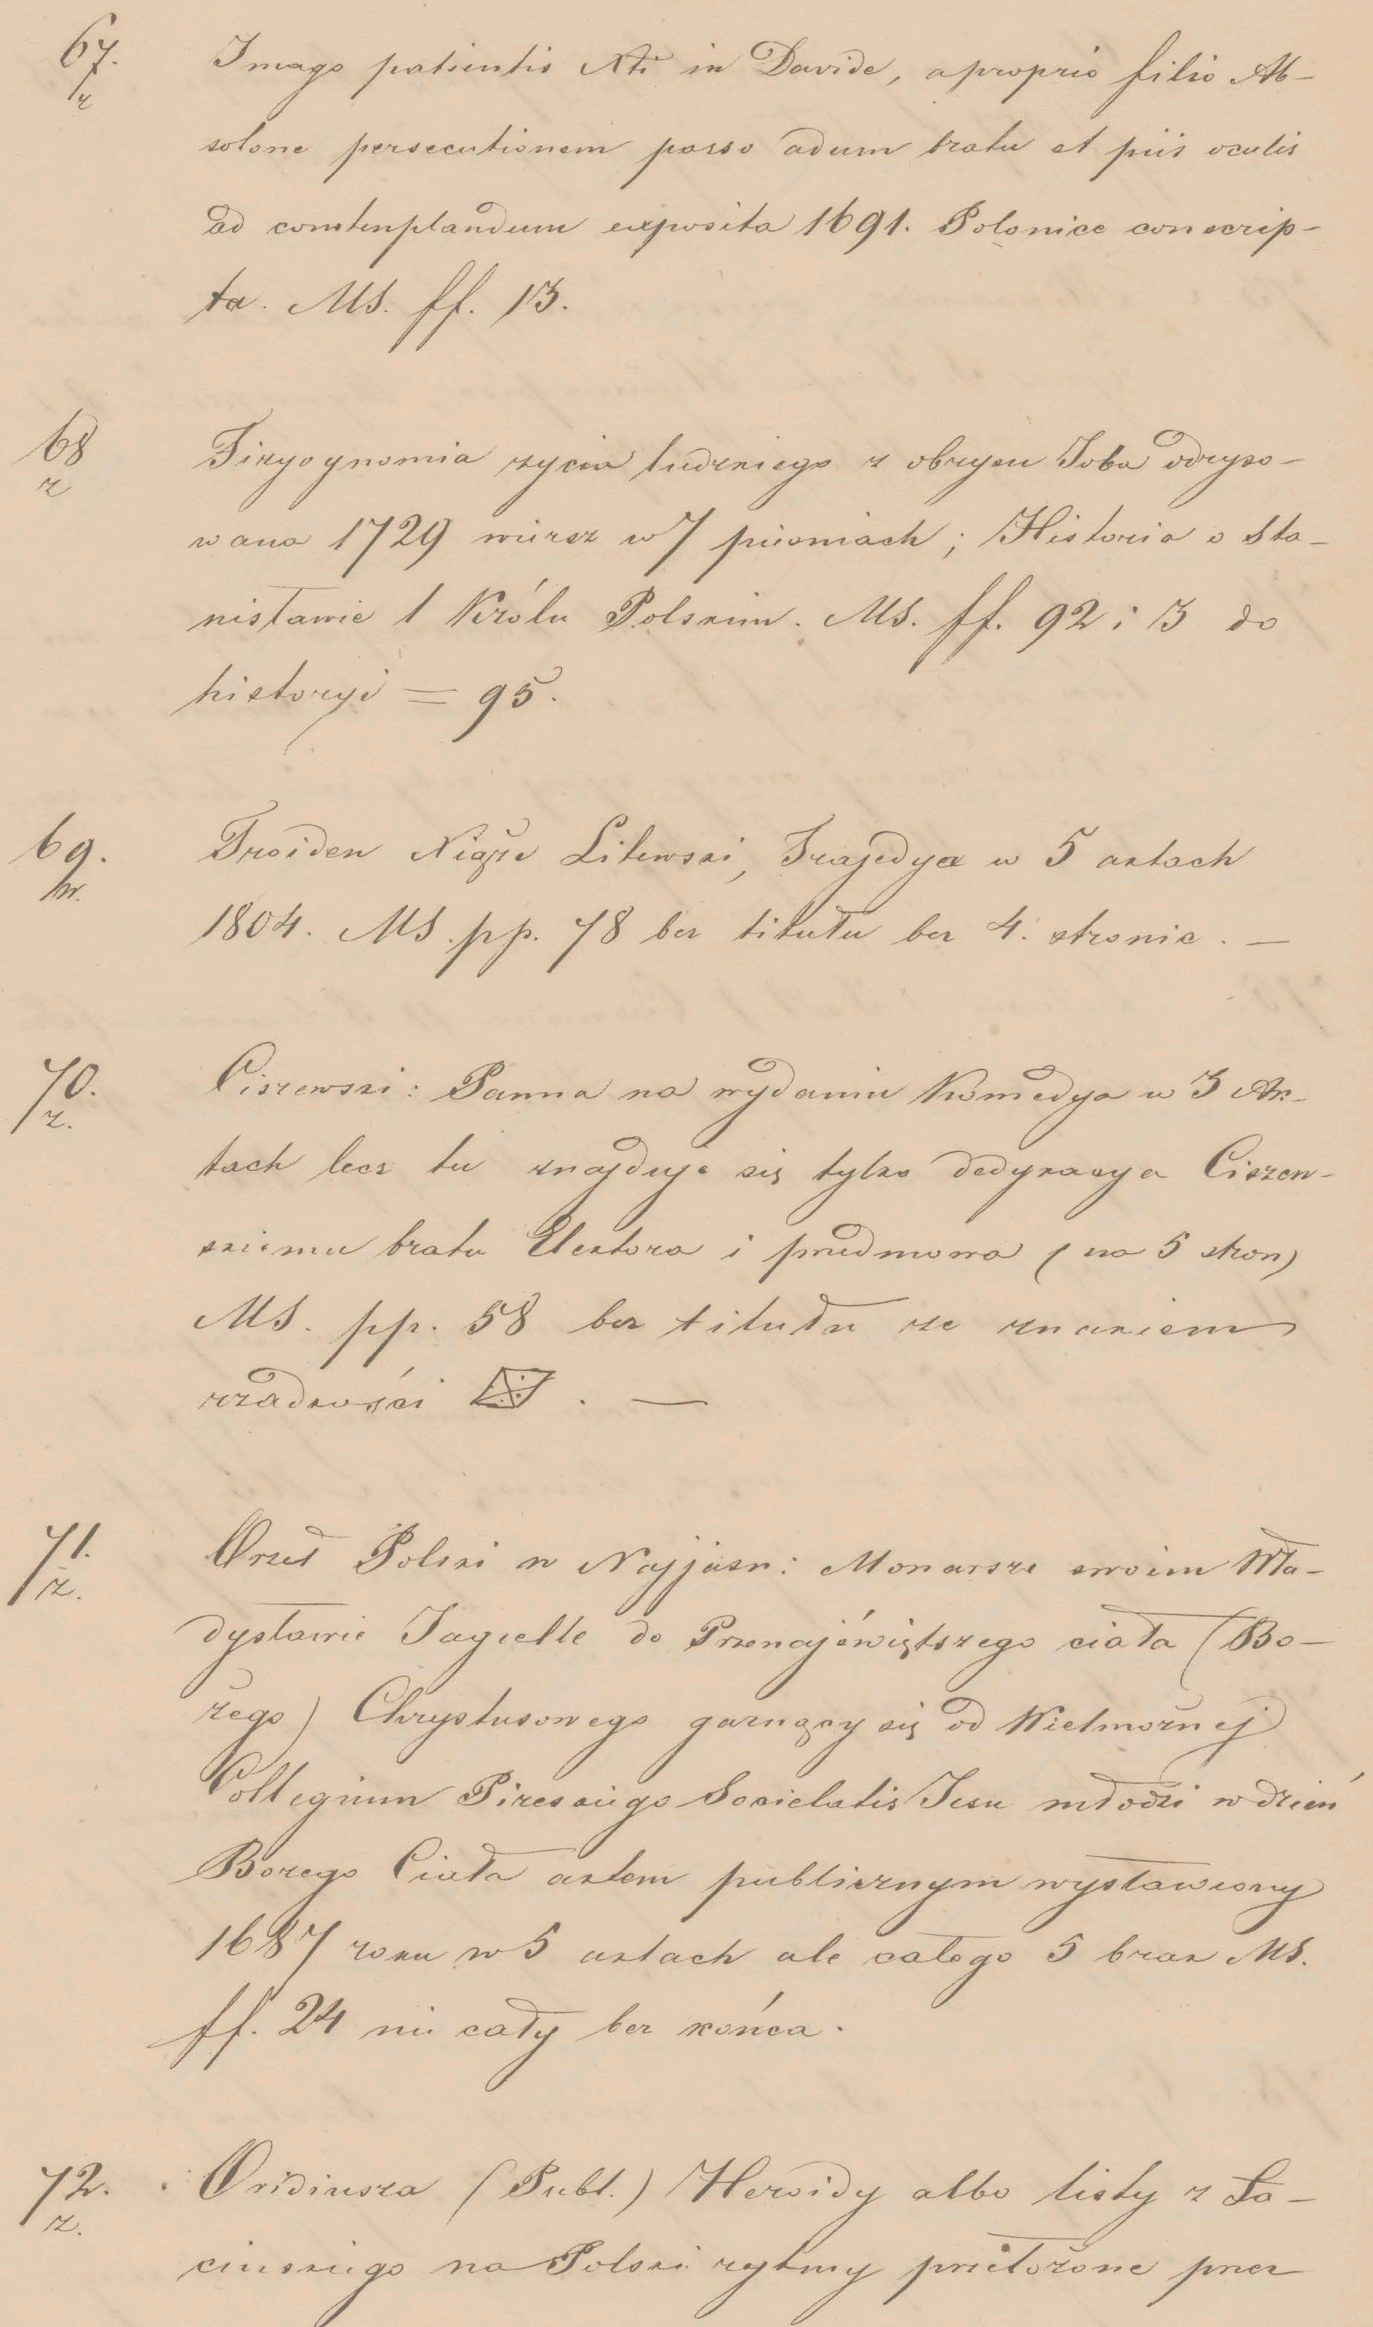 67.
z
Imago patientis Xti in Davide, a proprio filio Ab-
solone persecutionem passo adum bratu et piis oculis
ad comtenplandum exposita 1691. Polonice conscrip-
ta. MS. ff. 13.
68
z
Fizyognomia życia ludzkiego z obrysu Joba odryso-
wana 1729 wiersz w 7 pieśniach; Historia o Sta-
nisławie 1 Królu Polskim. MS. ff. 92 i 3 do
historyi = 95.
69.
Troiden Xiąże Litewski, Trajedya w 5 aktach
1804. MS. pp. 78 bez titułu bez 4. stronic. —
70.
z.
Ciszewski: Panna na wydaniu Komedya w 3 Ak-
tach lecz tu znajduje się tylko dedykacya Ciszew-
skiemu bratu Elektora i przedmowa (na 5 stron)
MS. pp. 58 bez titułu ze znakiem
rzadkości . —
71.
z.
Orzeł Polski w Najjaśn: Monarsze swoim Wła-
dysławie Jagielle do Przenajświętszego ciała (Bo-
żego) Chrystusowego garnący się od Wielmożnej
Collegium Pińskiego Societatis Jesu młodzi w dzień
Bożego Ciała aktem publicznym wystawiony
1687 roku w 5 aktach ale całego 5 brak MS.
ff. 24 nie cały bez końca.
72.
z.
Owidiusza (Publ.) Heroidy albo listy z Ła-
cińskiego na Polski rytmy przełożone przez